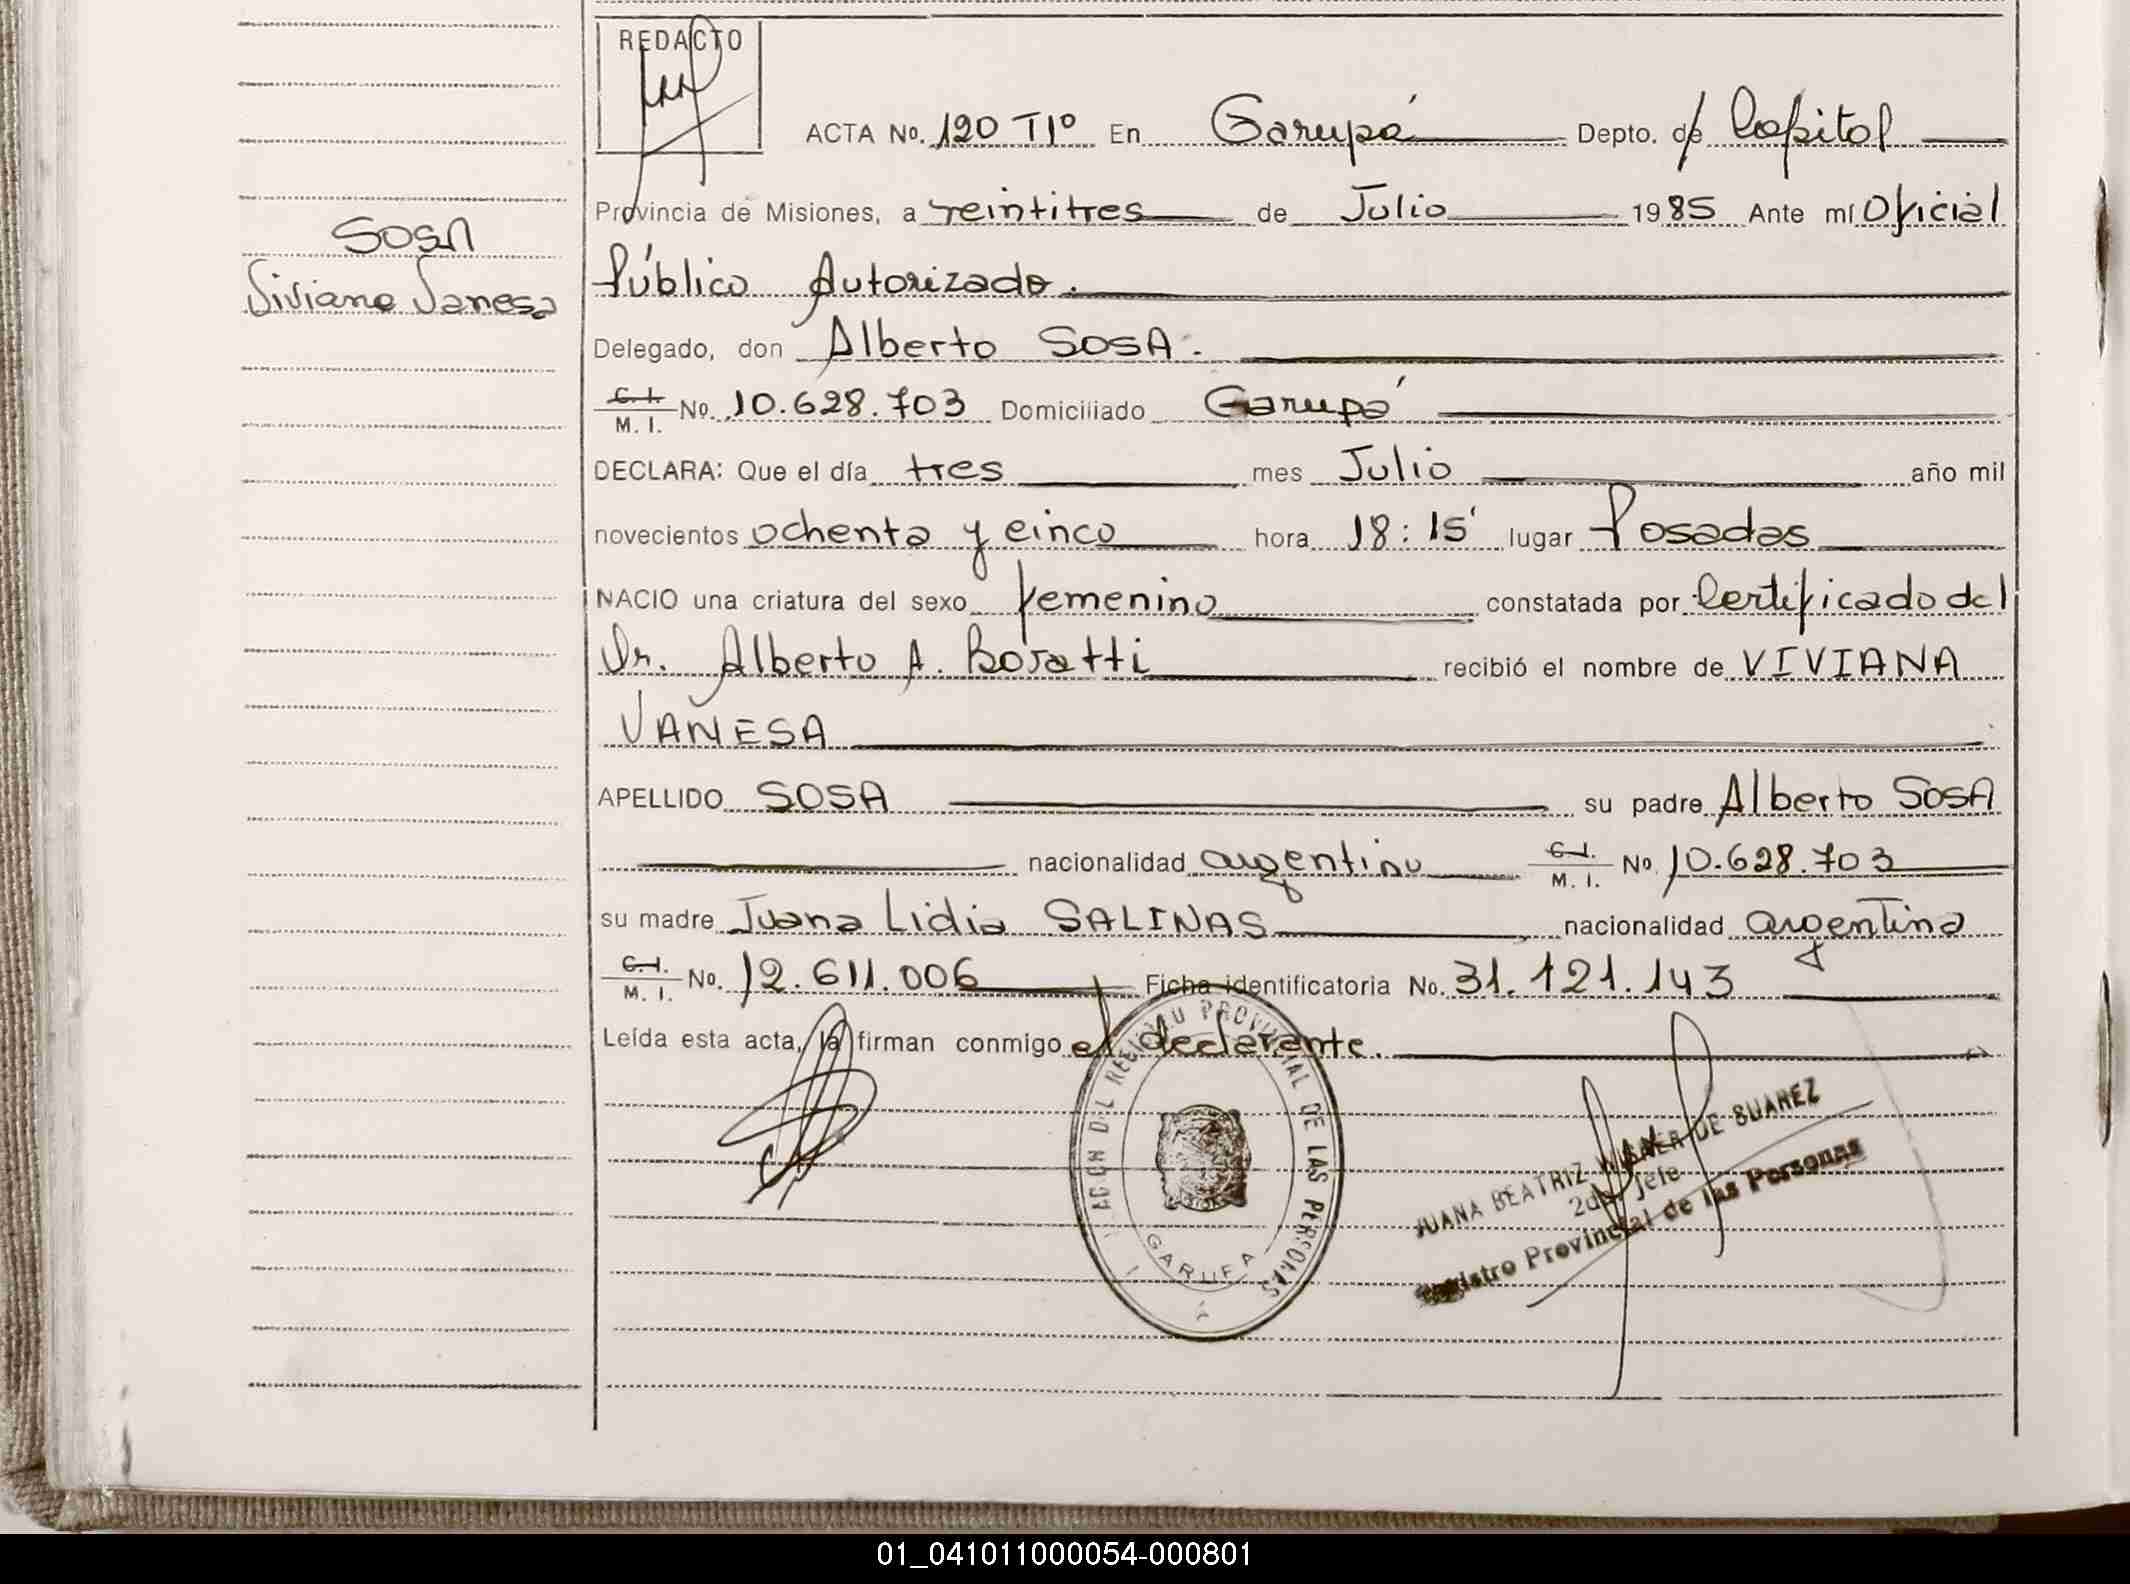 REDACTO
ACTA No. 120 TIº En Garupá Depto. de Capital
Provincia de Misiones, a veintitres de Julio 1985 Ante mí Oficial
SOSA
Público Autorizado.
Viviana Vanesa
Delegado, don Alberto SOSA.
C. I. M. I. No. 10.628.703 Domiciliado Garupá
DECLARA: Que el día tres mes Julio año mil
novecientos ochenta y cinco hora 18:15' lugar Posadas
NACIO una criatura del sexo femenino constatada por Certificado del
Dr. Alberto A. recibió el nombre de VIVIANA
VANESA
APELLIDO SOSA su padre Alberto SOSA
nacionalidad argentino C. I. M. I. No. 10.628.703
su madre Juana Lidia SALINAS nacionalidad argentina
C. I. M. I. No. 12.611.006 Ficha identificatoria No. 31.121.143
Leída esta acta, la firman conmigo el declarante.
REGISTRO PROVINCIAL DE LAS PERSONAS
GARUPA
JUANA BEATRIZ DE SUAREZ
2do Jefe
Registro Provincial de las Personas
01_041011000054-000801